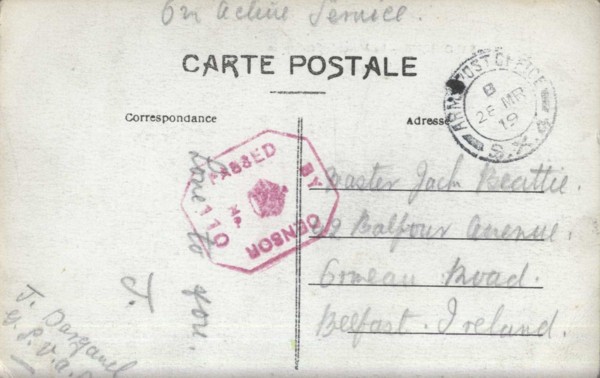 On Active Service.
CARTE POSTALE
Correspondance
Adresse
ARMY POST OFFICE
B
26 MR
19
S.X.
PASSED BY CENSOR
110
Love to
you.
J.
Master Jack Beattie.
42 Balfour Avenue.
Ormeau Road.
Belfast. Ireland.
J.